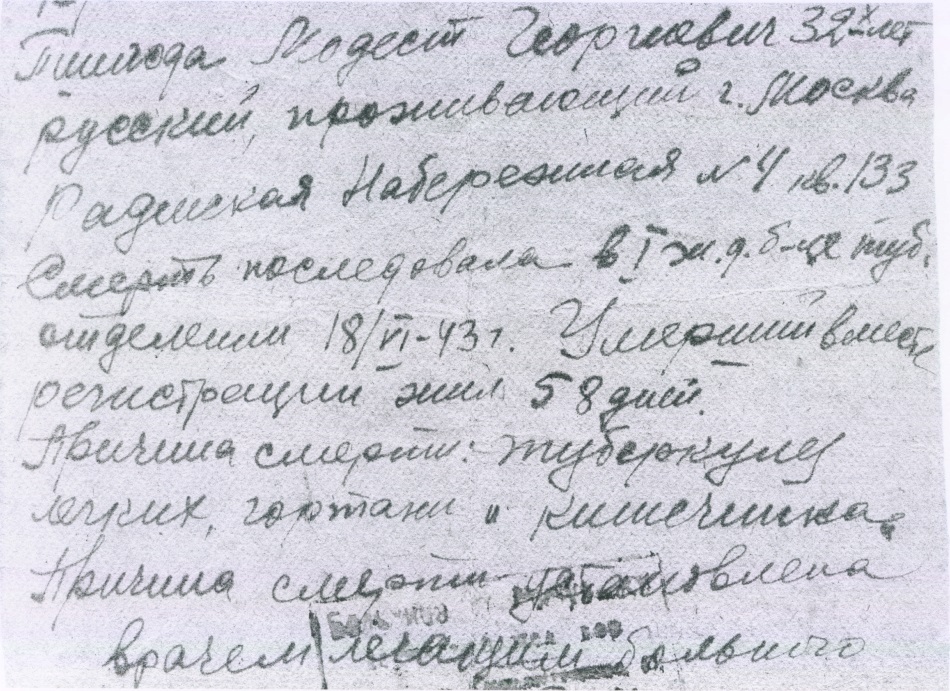 Модест Георгиевич 32х лет
русский, проживающий г. Москва
Набережная № 4 кв. 133
Смерть последовала в I ж.д. б-це туб.
отделении 18/VI-43 г. Умерший в месте
регистрации жил 58 дней.
Причина смерти: туберкулез
легких, гортани и кишечника.
Причина смерти установлена
врачем лечащим больного